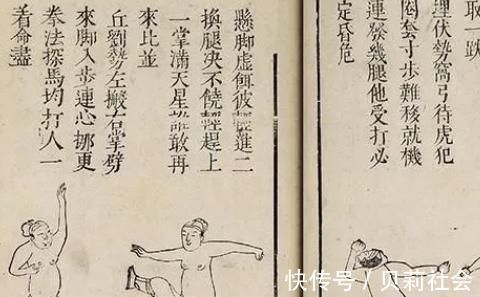 取一跌
埋伏勢窩弓待虎犯
圈套寸步難移就機
連發幾腿他受打必
定昏危
懸脚虛餌彼輕進二
換腿決不饒輕趕上
一掌滿天星誰敢再
來比並
丘劉勢左搬右掌劈
來脚入步連心挪更
拳法探馬均打人一
着命盡
快传号 / 贝莉社会